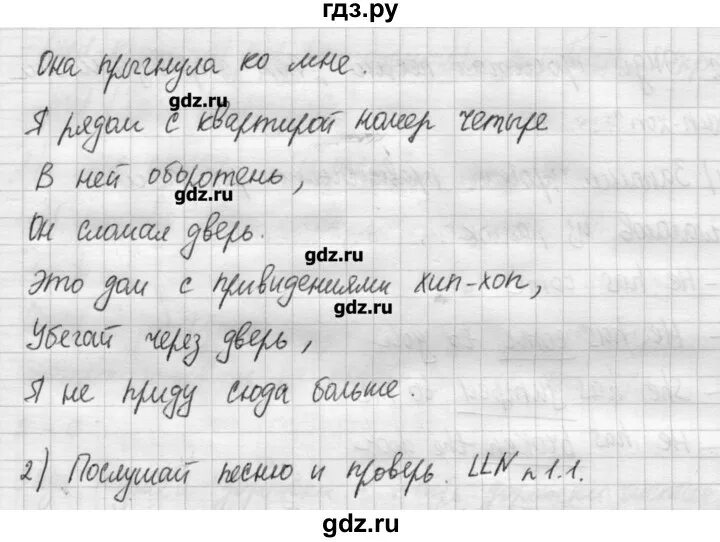 гдз.ру
Она прыгнула ко мне.
gdz.ru
Я рядом с квартирой номер четыре
В ней оборотень,
gdz.ru
Он сломал дверь.
gdz.ru
Это дом с привидениями хип-хоп,
gdz.ru
Убегай через дверь,
Я не приду сюда больше.
gdz.ru
2) Послушай песню и проверь. LLN n 1.1.
gdz.ru